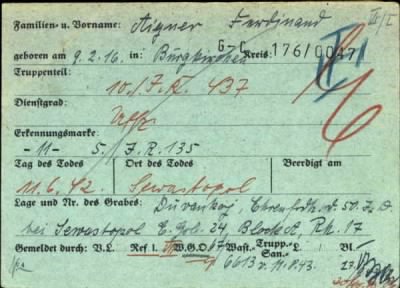 Familien- u. Vorname: Aigner Ferdinand
geboren am 9.2.16. in: Burgkirchen Kreis: G-C 176/0047
Truppenteil:
10./J.R. 437
Dienstgrad:
Uffz
Erkennungsmarke:
-11- 5. J.R. 135
Tag des Todes Ort des Todes Beerdigt am
11.6.42. Sewastopol
Lage und Nr. des Grabes: Duvankoj, Ehrenfrdh. d. 50. J.D.
bei Sewastopol E. Grl. 24, Block A, Rh. 17
Gemeldet durch: V.L. Ref I. W.G.O. Wast.- Trupp.- San.- L. Bl.
6613 v. 11.8.43.